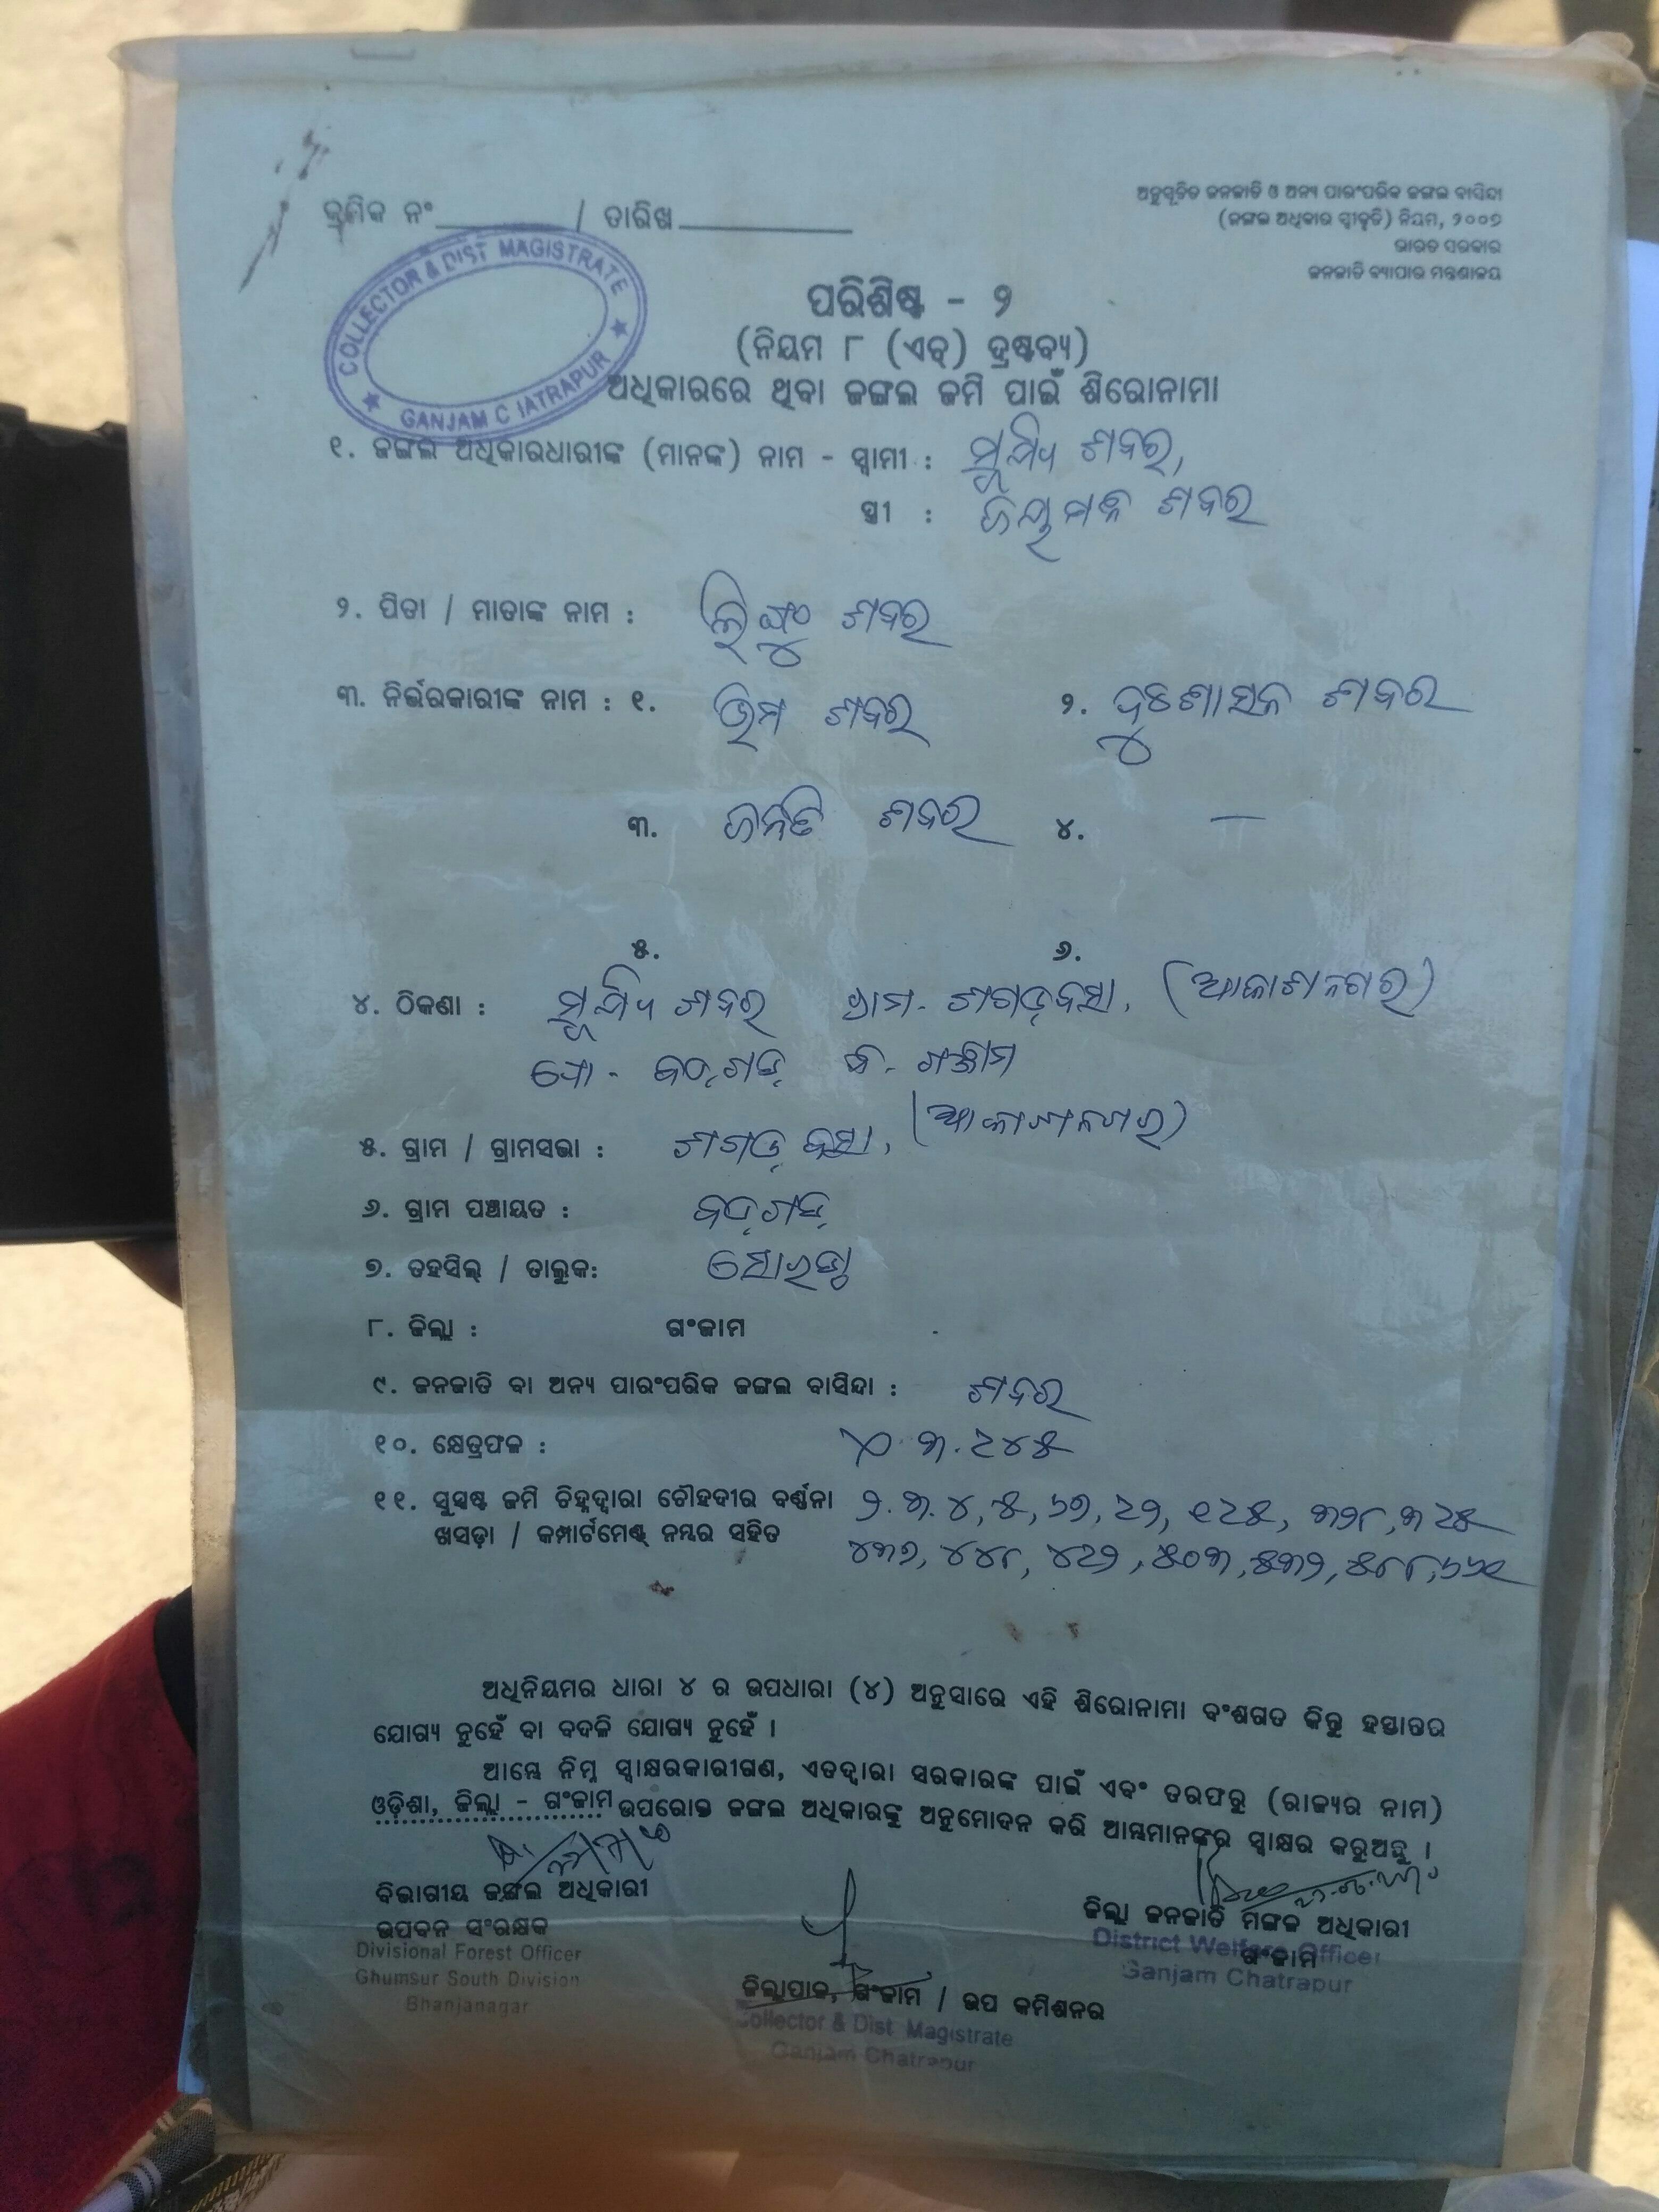 ଅନୁସୂଚିତ ଜନଜାତି ଓ ଅନ୍ୟ ପାରଂପରିକ ଜଙ୍ଗଲ ବାସିନ୍ଦା
(ଜଙ୍ଗଲ ଅଧିକାର ସ୍ୱୀକୃତି) ନିୟମ, ୨୦୦୭
ଭାରତ ସରକାର
ଜନଜାତି ବ୍ୟାପାର ମନ୍ତ୍ରଣାଳୟ
କ୍ରମିକ ନଂ / ତାରିଖ
COLLECTOR & DIST MAGISTRATE
GANJAM
ପରିଶିଷ୍ଟ - ୨
(ନିୟମ ୮ (ଏଚ୍) ଦ୍ରଷ୍ଟବ୍ୟ)
ଅଧିକାରରେ ଥିବା ଜଙ୍ଗଲ ଜମି ପାଇଁ ଶିରୋନାମା
୧. ଜଙ୍ଗଲ ଅଧିକାରଧାରୀଙ୍କ (ମାନଙ୍କ) ନାମ - ସ୍ୱାମୀ : ଶବର,
ସ୍ତ୍ରୀ : ଶବର
୨. ପିତା / ମାତାଙ୍କ ନାମ : ଶବର
୩. ନିର୍ଭରକାରୀଙ୍କ ନାମ : ୧. ଭିମ ଶବର ୨. ଶବର
୩. ଶବର ୪. —
୫. ୬.
୪. ଠିକଣା : ଶବର ଗ୍ରାମ- ଶଗଡ଼ବସା, (ଆକାଶନଗର)
ପୋ- ବଡ଼ଗଡ଼ ଜି- ଗଞ୍ଜାମ
୫. ଗ୍ରାମ / ଗ୍ରାମସଭା : ଶଗଡ଼ବସା, (ଆକାଶନଗର)
୬. ଗ୍ରାମ ପଞ୍ଚାୟତ : ବଡ଼ଗଡ଼
୭. ତହସିଲ୍ / ତାଲୁକ: ସୋରଡ଼ା
୮. ଜିଲ୍ଲା : ଗଂଜାମ
୯. ଜନଜାତି ବା ଅନ୍ୟ ପାରଂପରିକ ଜଙ୍ଗଲ ବାସିନ୍ଦା : ଶବର
୧୦. କ୍ଷେତ୍ରଫଳ :
୧୧. ସୁସ୍ପଷ୍ଟ ଜମି ଚିହ୍ନଦ୍ୱାରା ଚୌହଦୀର ବର୍ଣ୍ଣନା
ଖସଡ଼ା / କମ୍ପାର୍ଟମେଣ୍ଟ୍ ନମ୍ବର ସହିତ
ଅଧିନିୟମର ଧାରା ୪ ର ଉପଧାରା (୪) ଅନୁସାରେ ଏହି ଶିରୋନାମା ବଂଶଗତ କିନ୍ତୁ ହସ୍ତାନ୍ତର
ଯୋଗ୍ୟ ନୁହେଁ ବା ବଦଳି ଯୋଗ୍ୟ ନୁହେଁ ।
ଆମ୍ଭେ ନିମ୍ନ ସ୍ୱାକ୍ଷରକାରୀଗଣ, ଏତଦ୍ୱାରା ସରକାରଙ୍କ ପାଇଁ ଏବଂ ତରଫରୁ (ରାଜ୍ୟର ନାମ)
ଓଡ଼ିଶା, ଜିଲ୍ଲା - ଗଂଜାମ ଉପରୋକ୍ତ ଜଙ୍ଗଲ ଅଧିକାରଙ୍କୁ ଅନୁମୋଦନ କରି ଆମ୍ଭମାନଙ୍କର ସ୍ୱାକ୍ଷର କରୁଅଛୁ ।
ବିଭାଗୀୟ ଜଙ୍ଗଲ ଅଧିକାରୀ
ଉପବନ ସଂରକ୍ଷକ
Divisional Forest Officer
Ghumsur South Division
Bhanjanagar
ଜିଲ୍ଲାପାଳ, ଗଂଜାମ / ଉପ କମିଶନର
Collector & Dist. Magistrate
Ganjam Chatrapur
ଜିଲ୍ଲା ଜନଜାତି ମଙ୍ଗଳ ଅଧିକାରୀ
ଗଂଜାମ
District Welfare Officer
Ganjam Chatrapur